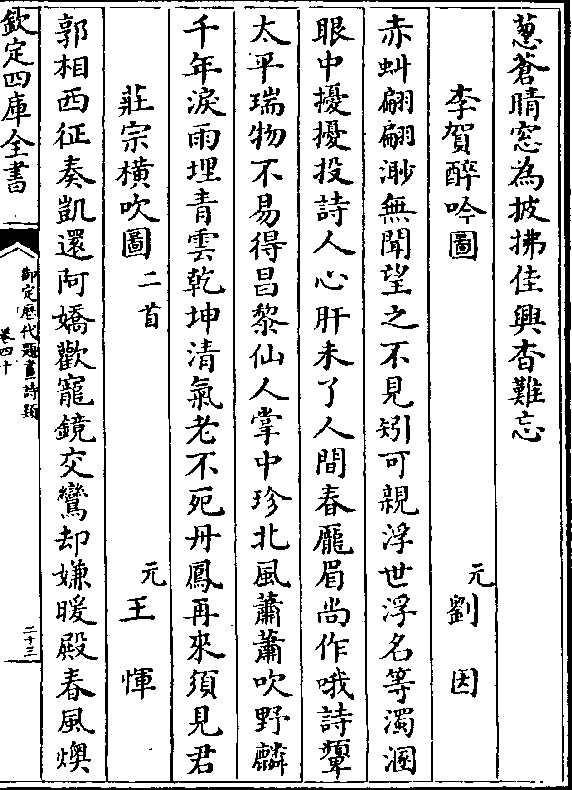 葱蒼晴窓為披拂佳興杳難忘
李賀醉吟圖 元 劉因
赤虯翩翩渺無聞望之不見矧可親浮世浮名等濁溷
眼中擾擾投詩人心肝未了人間春龎眉尚作哦詩顰
太平瑞物不易得昌黎仙人掌中珍北風蕭蕭吹野麟
千年淚雨埋青雲乾坤清氣老不死丹鳳再來須見君
莊宗橫吹圖二首 元 王惲
郭相西征奏凱還阿嬌歡寵鏡交鸞却嫌暖殿春風燠
欽定四庫全書
御定歷代題畫詩類
卷四十
二十三